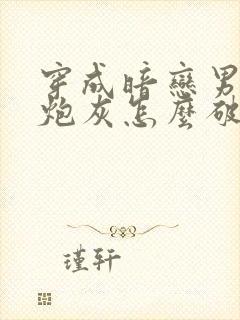 穿成暗戀男
炮灰怎麼破
瑾轩